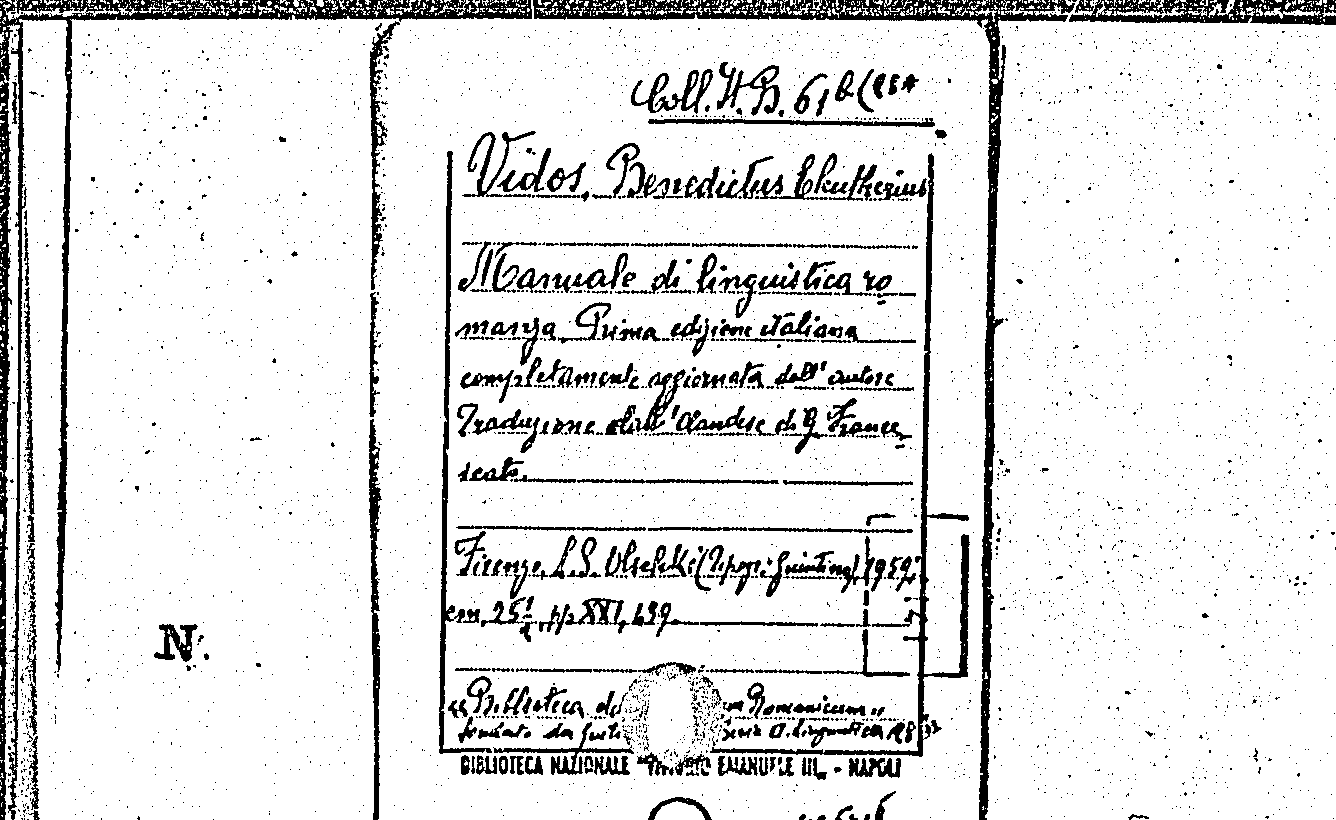 Coll. It. B. 61
Vidos, Benedictus Eleutherius
Manuale di linguistica ro
manza. Prima edizione italiana
completamente aggiornata dall'autore
Traduzione dall'olandese di G. France
scato.
Firenze, L. S. Olschki (Tipogr. Giuntina), 1959,
cm. 25 1/2, pp. XXI, 439.
«Biblioteca Romanicum»
N.
BIBLIOTECA NAZIONALE "VITTORIO EMANUELE III" - NAPOLI